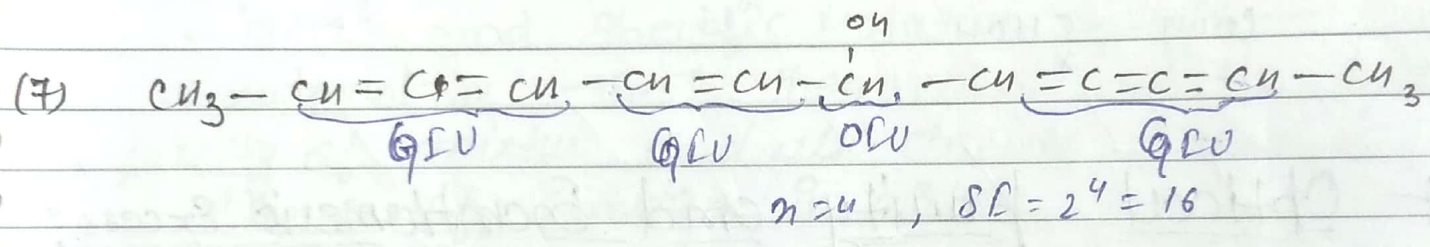 OH
(7) CH3 - CH = C = CH - CH = CH - CH - CH = C = C = CH - CH3
GSU GSU OSU GSU
n = 4 , SI = 2^4 = 16